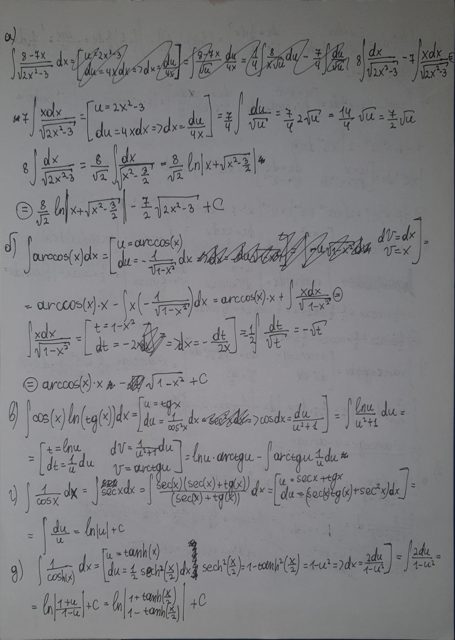 а)
∫ (8-7x)/√(2x²-3) dx = [u=2x²-3, du=4xdx => dx=du/4x] = ∫ (8-7x)/√u du/4x = 8∫ dx/√(2x²-3) - 7∫ xdx/√(2x²-3) =
7∫ xdx/√(2x²-3) = [u=2x²-3, du=4xdx => dx=du/4x] = 7/4 ∫ du/√u = 7/4 2√u = 14/4 √u = 7/2 √u
8∫ dx/√(2x²-3) = 8/√2 ∫ dx/√(x²-3/2) = 8/√2 ln|x+√(x²-3/2)|
= 8/√2 ln|x+√(x²-3/2)| - 7/2 √(2x²-3) + C
б) ∫ arccos(x)dx = [u=arccos(x), du=-1/√(1-x²) dx, dV=dx, V=x] =
= arccos(x)·x - ∫ x(-1/√(1-x²))dx = arccos(x)·x + ∫ xdx/√(1-x²) =
∫ xdx/√(1-x²) = [t=1-x², dt=-2x => dx=-dt/2x] = ½ ∫ dt/√t = -√t
= arccos(x)·x - √(1-x²) + C
в) ∫ cos(x) ln(tg(x))dx = [u=tgx, du=1/cos²x dx => cosdx=du/(u²+1)] = ∫ lnu/(u²+1) du =
= [t=lnu, dt=1/u du, dV=1/(u²+1) du, V=arctgu] = lnu·arctgu - ∫ arctgu 1/u du
г) ∫ 1/cosx dx = ∫ secxdx = ∫ sec(x)(sec(x)+tg(x))/(sec(x)+tg(x)) dx = [u=secx+tgx, du=(sec(x)tg(x)+sec²x)dx] =
= ∫ du/u = ln|u|+C
g) ∫ 1/cosh(x) dx = [u=tanh(x), du=1/2 sech²(x/2)dx, sech²(x/2)=1-tanh²(x/2)=1-u² => dx=2du/(1-u²)] = ∫ 2du/(1-u²) =
= ln|(1+u)/(1-u)|+C = ln|(1+tanh(x/2))/(1-tanh(x/2))| + C